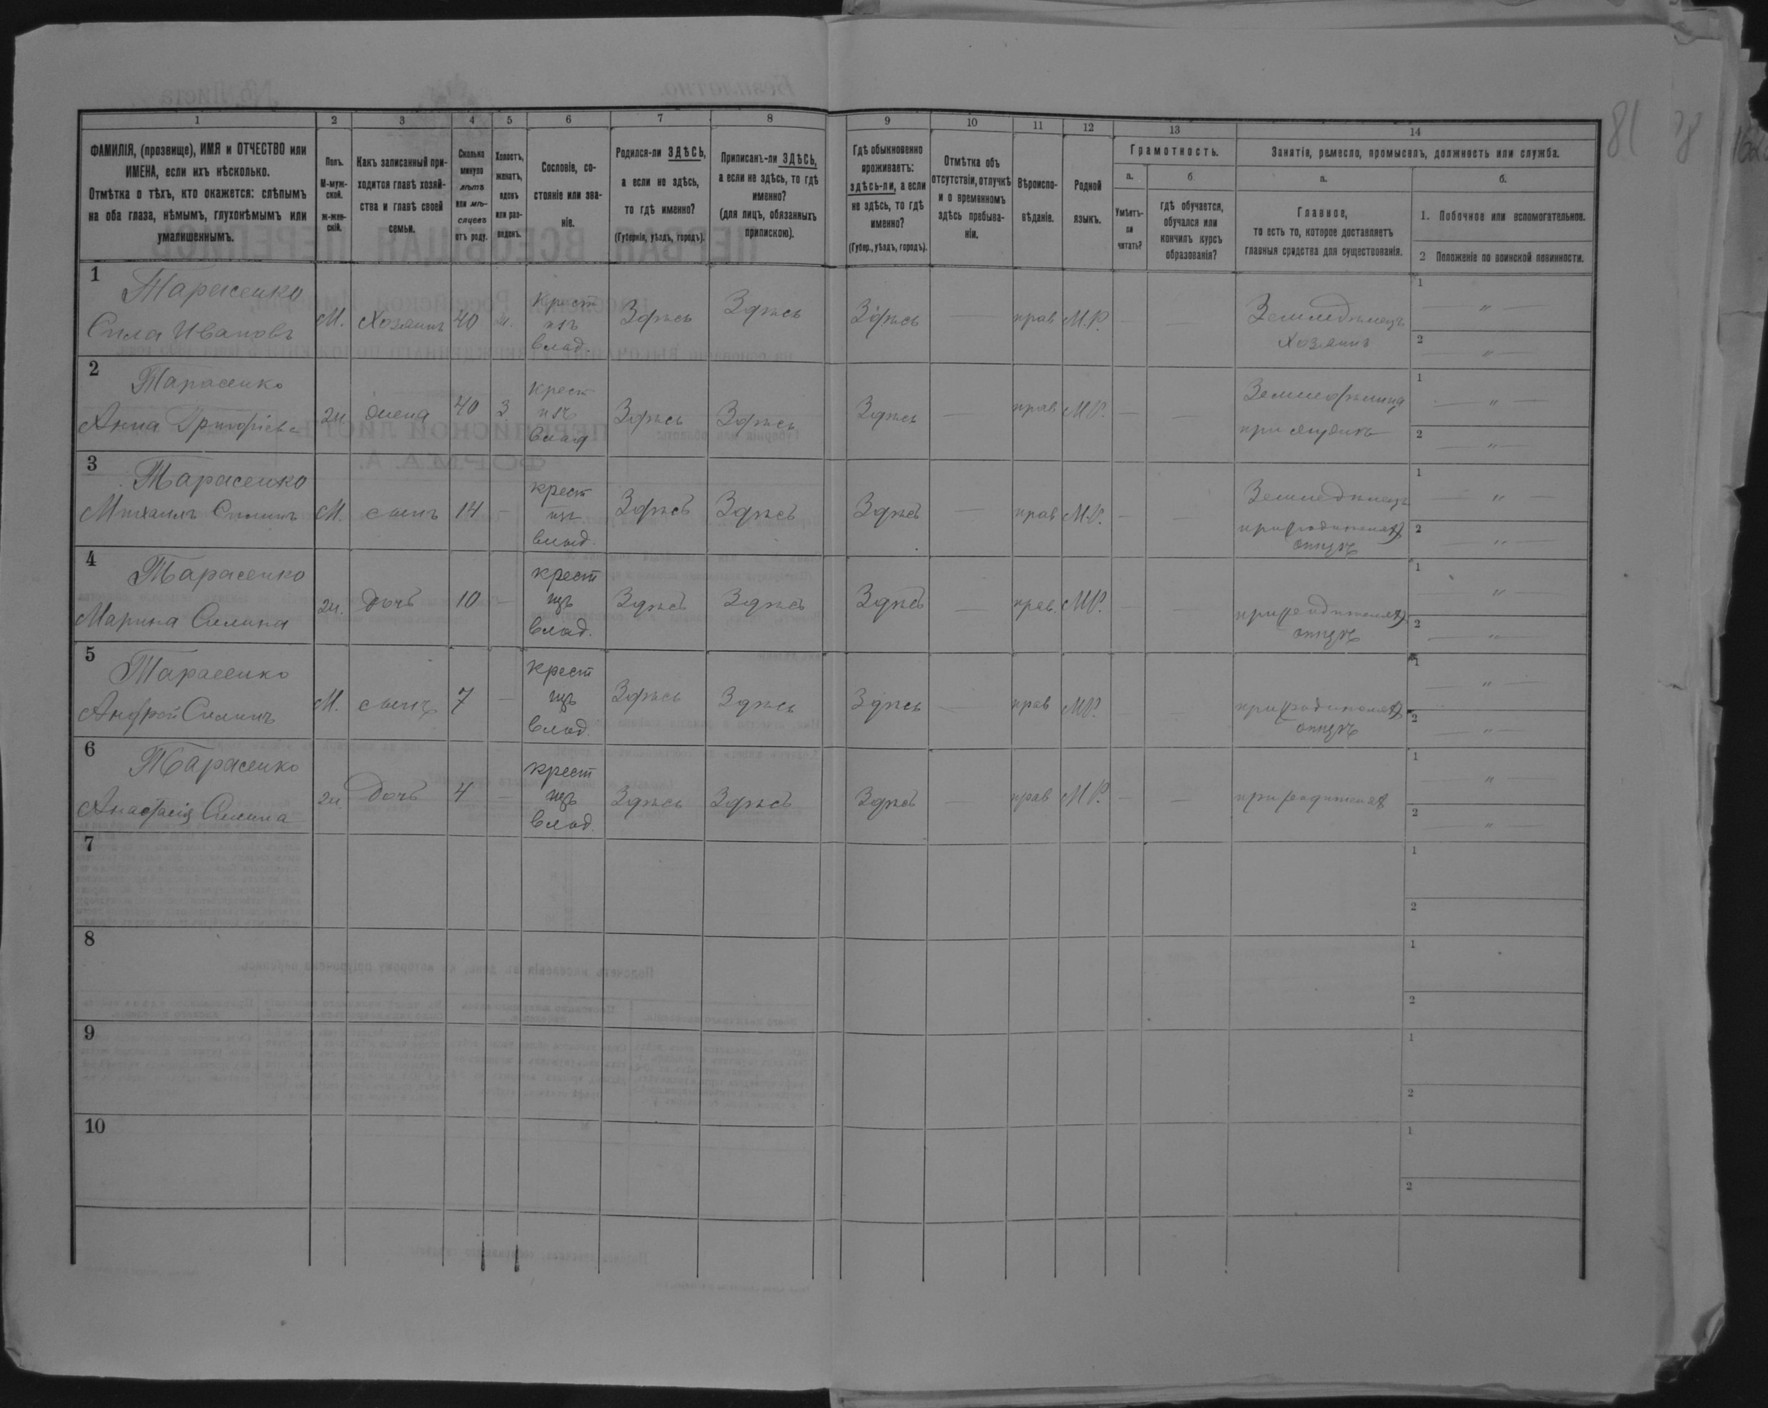 81
1
2
3
4
5
6
7
8
9
10
11
12
13
14
ФАМИЛІЯ, (прозвище), ИМЯ и ОТЧЕСТВО или
ИМЕНА, если ихъ нѣсколько.
Отмѣтка о тѣхъ, кто окажется: слѣпымъ
на оба глаза, нѣмымъ, глухонѣмымъ или
умалишеннымъ.
Полъ.
М-муж-
ской.
ж-жен-
скій.
Какъ записанный при-
ходится главѣ хозяй-
ства и главѣ своей
семьи.
Сколько
минуло
лѣтъ
или мѣ-
сяцевъ
отъ роду.
Холостъ,
женатъ,
вдовъ
или раз-
веденъ.
Сословіе, со-
стояніе или зва-
ніе.
Родился-ли ЗДѢСЬ,
а если не здѣсь,
то гдѣ именно?
(Губернія, уѣздъ, городъ).
Приписанъ-ли ЗДѢСЬ,
а если не здѣсь, то гдѣ
именно?
(для лицъ, обязанныхъ
припискою).
Гдѣ обыкновенно
проживаетъ:
здѣсь-ли, а если
не здѣсь, то гдѣ
именно?
(Губер., уѣздъ, городъ).
Отмѣтка объ
отсутствіи, отлучкѣ
и о временномъ
здѣсь пребыва-
ніи.
Вѣроиспо-
вѣданіе.
Родной
языкъ.
Грамотность.
а.
Умѣетъ-
ли
читать?
б
гдѣ обучается,
обучался или
кончилъ курсъ
образованія?
Занятіе, ремесло, промыселъ, должность или служба.
а.
Главное,
то есть то, которое доставляетъ
главныя средства для существованія.
б.
1. Побочное или вспомогательное.
2 Положеніе по воинской повинности.
1
Тарасенко
Сила Ивановъ
М. Хозяинъ 40 ж.
Крест
изъ
влад.
Здѣсь Здѣсь Здѣсь — прав М.Р. — —
Земледѣлецъ
хозяинъ
1 — " —
2 — " —
2
Тарасенко
Анна
ж жена 40 З
крест
изъ
влад
Здѣсь Здѣсь Здѣсь — прав М.Р. — —
при
1 — " —
2 — " —
3
Тарасенко
Михаилъ Силинъ
М. сынъ 14 —
крест
изъ
влад.
Здѣсь Здѣсь Здѣсь — прав М.Р. — —
Земледѣлецъ
при родителяхъ
1 — " —
2 — " —
4
Тарасенко
Марина Силина
ж. дочь 10 —
крест
изъ
влад.
Здѣсь Здѣсь Здѣсь — прав М.Р. — —
при родителяхъ
1 — " —
2 — " —
5
Тарасенко
Андрей Силинъ
М. сынъ 7 —
крест
изъ
влад.
Здѣсь Здѣсь Здѣсь — прав М.Р. — —
при родителяхъ
1 — " —
2 — " —
6
Тарасенко
Анастасія Силина
ж дочь 4 —
крест
изъ
влад.
Здѣсь Здѣсь Здѣсь — прав М.Р. — —
при родителяхъ
1 — " —
2 — " —
7
1
2
8
1
2
9
1
2
10
1
2